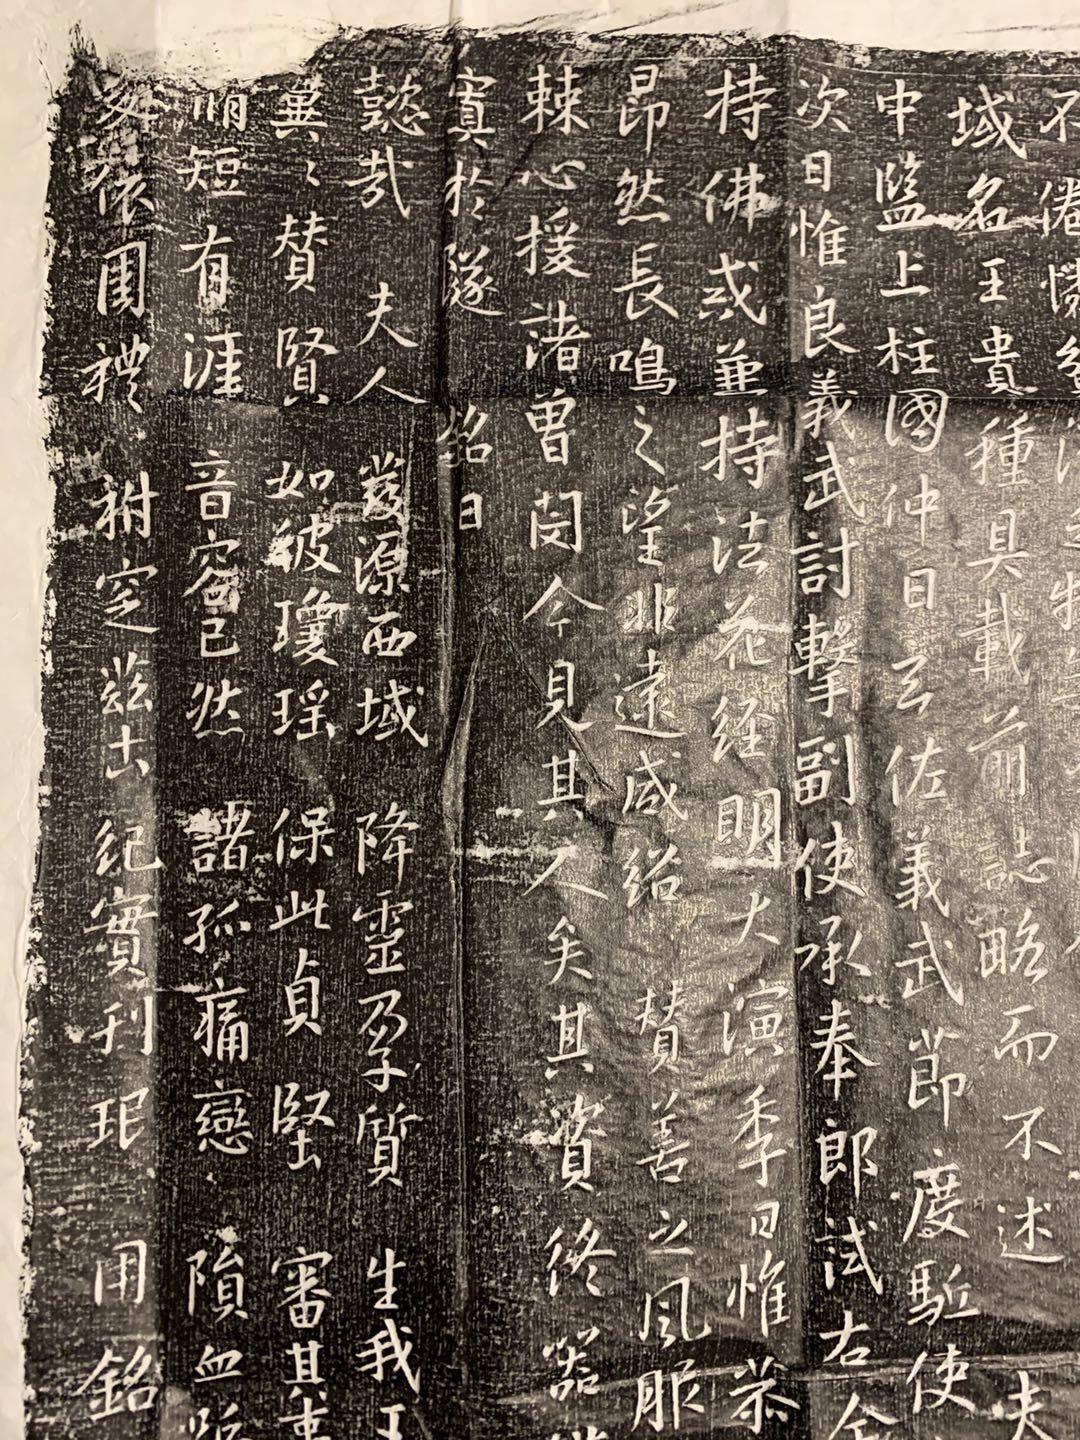 不倦懷
域名王貴種具載前誌略而不述夫
中監上柱國仲曰云佐義武節度駈使
次曰惟良義武討擊副使承奉郎試右金
持佛或兼持法花經明大演季曰惟恭
昂然長鳴之望非遠咸紹賛善之風服
棘心援諸曾閔今見其人矣其賓終
寘於隧銘曰
懿哉夫人發源西域降靈孕質生我
冀〻賛賢如彼瓊瑶保此貞堅審其
脩短有涯音容已然諸孤痛戀隕血
攻依周禮祔窆茲古紀實刊珉用銘